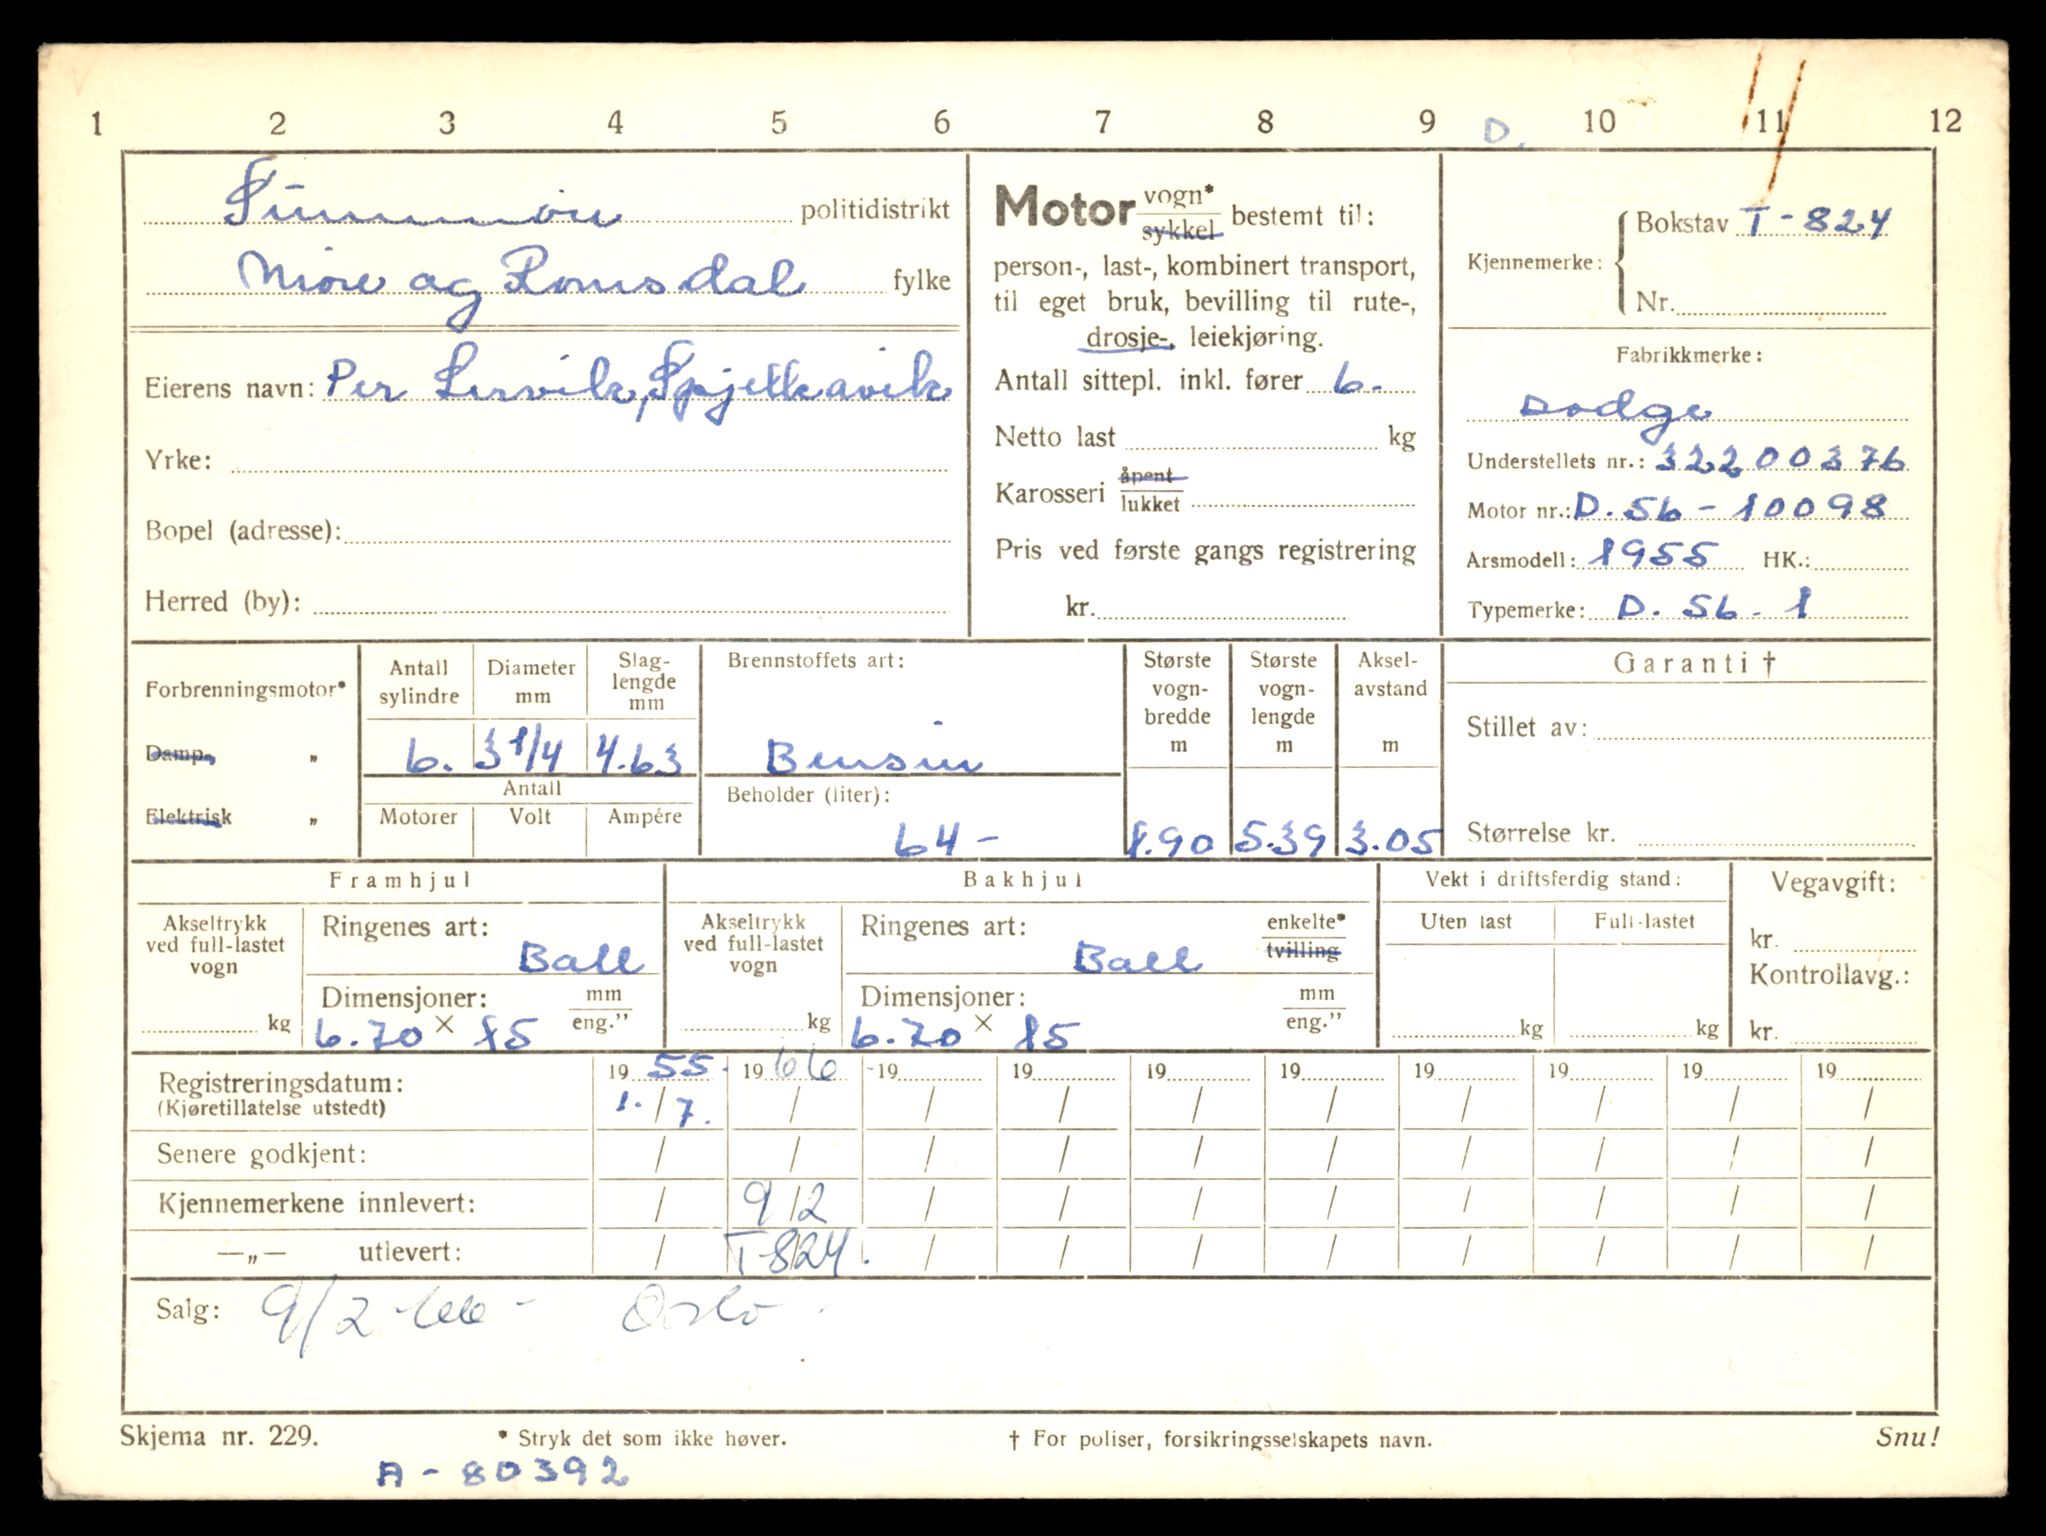 1 2 3 4 5 6 7 8 9 D. 10 11 12
Sunnmøre politidistrikt
Møre og Romsdal fylke
Eierens navn: Per Servik, Spjelkavik
Yrke:
Bopel (adresse):
Herred (by):
Motor vogn* / sykkel bestemt til:
person-, last-, kombinert transport,
til eget bruk, bevilling til rute-,
drosje-, leiekjøring.
Antall sittepl. inkl. fører 6.
Netto last kg
Karosseri åpent / lukket
Pris ved første gangs registrering
kr.
Kjennemerke: Bokstav T-824
Nr.
Fabrikkmerke:
Dodge
Understellets nr.: 32200376
Motor nr.: D.56-10098
Arsmodell: 1955 HK.:
Typemerke: D. 56-1
Forbrenningsmotor*
Damp- „
Elektrisk „
Antall sylindre
6.
Diameter mm
3 1/4
Slag-lengde mm
4.63
Antall
Motorer Volt Ampére
Brennstoffets art:
Bensin
Beholder (liter):
64-
Største vogn-bredde m
1.90
Største vogn-lengde m
5.39
Aksel-avstand m
3.05
Garanti †
Stillet av:
Størrelse kr.
Framhjul
Akseltrykk ved full-lastet vogn
kg
Ringenes art:
Ball
Dimensjoner: mm / eng."
6.70 × 15
Bakhjul
Akseltrykk ved full-lastet vogn
kg
Ringenes art: enkelte* / tvilling
Ball
Dimensjoner: mm / eng."
6.70 × 15
Vekt i driftsferdig stand:
Uten last Full-lastet
kg kg
Vegavgift:
kr.
Kontrollavg.:
kr.
Registreringsdatum: 19 55- 19 66 - 19 19 19 19 19 19 19 19
(Kjøretillatelse utstedt) 1. / 7. / / / / / / / / /
Senere godkjent: / / / / / / / / / /
Kjennemerkene innlevert: / 9/2 / / / / / / / /
—„— utlevert: / T-824. / / / / / / / /
Salg: 9/2-66- Oslo.
Skjema nr. 229. * Stryk det som ikke høver. † For poliser, forsikringsselskapets navn. Snu!
A-80392